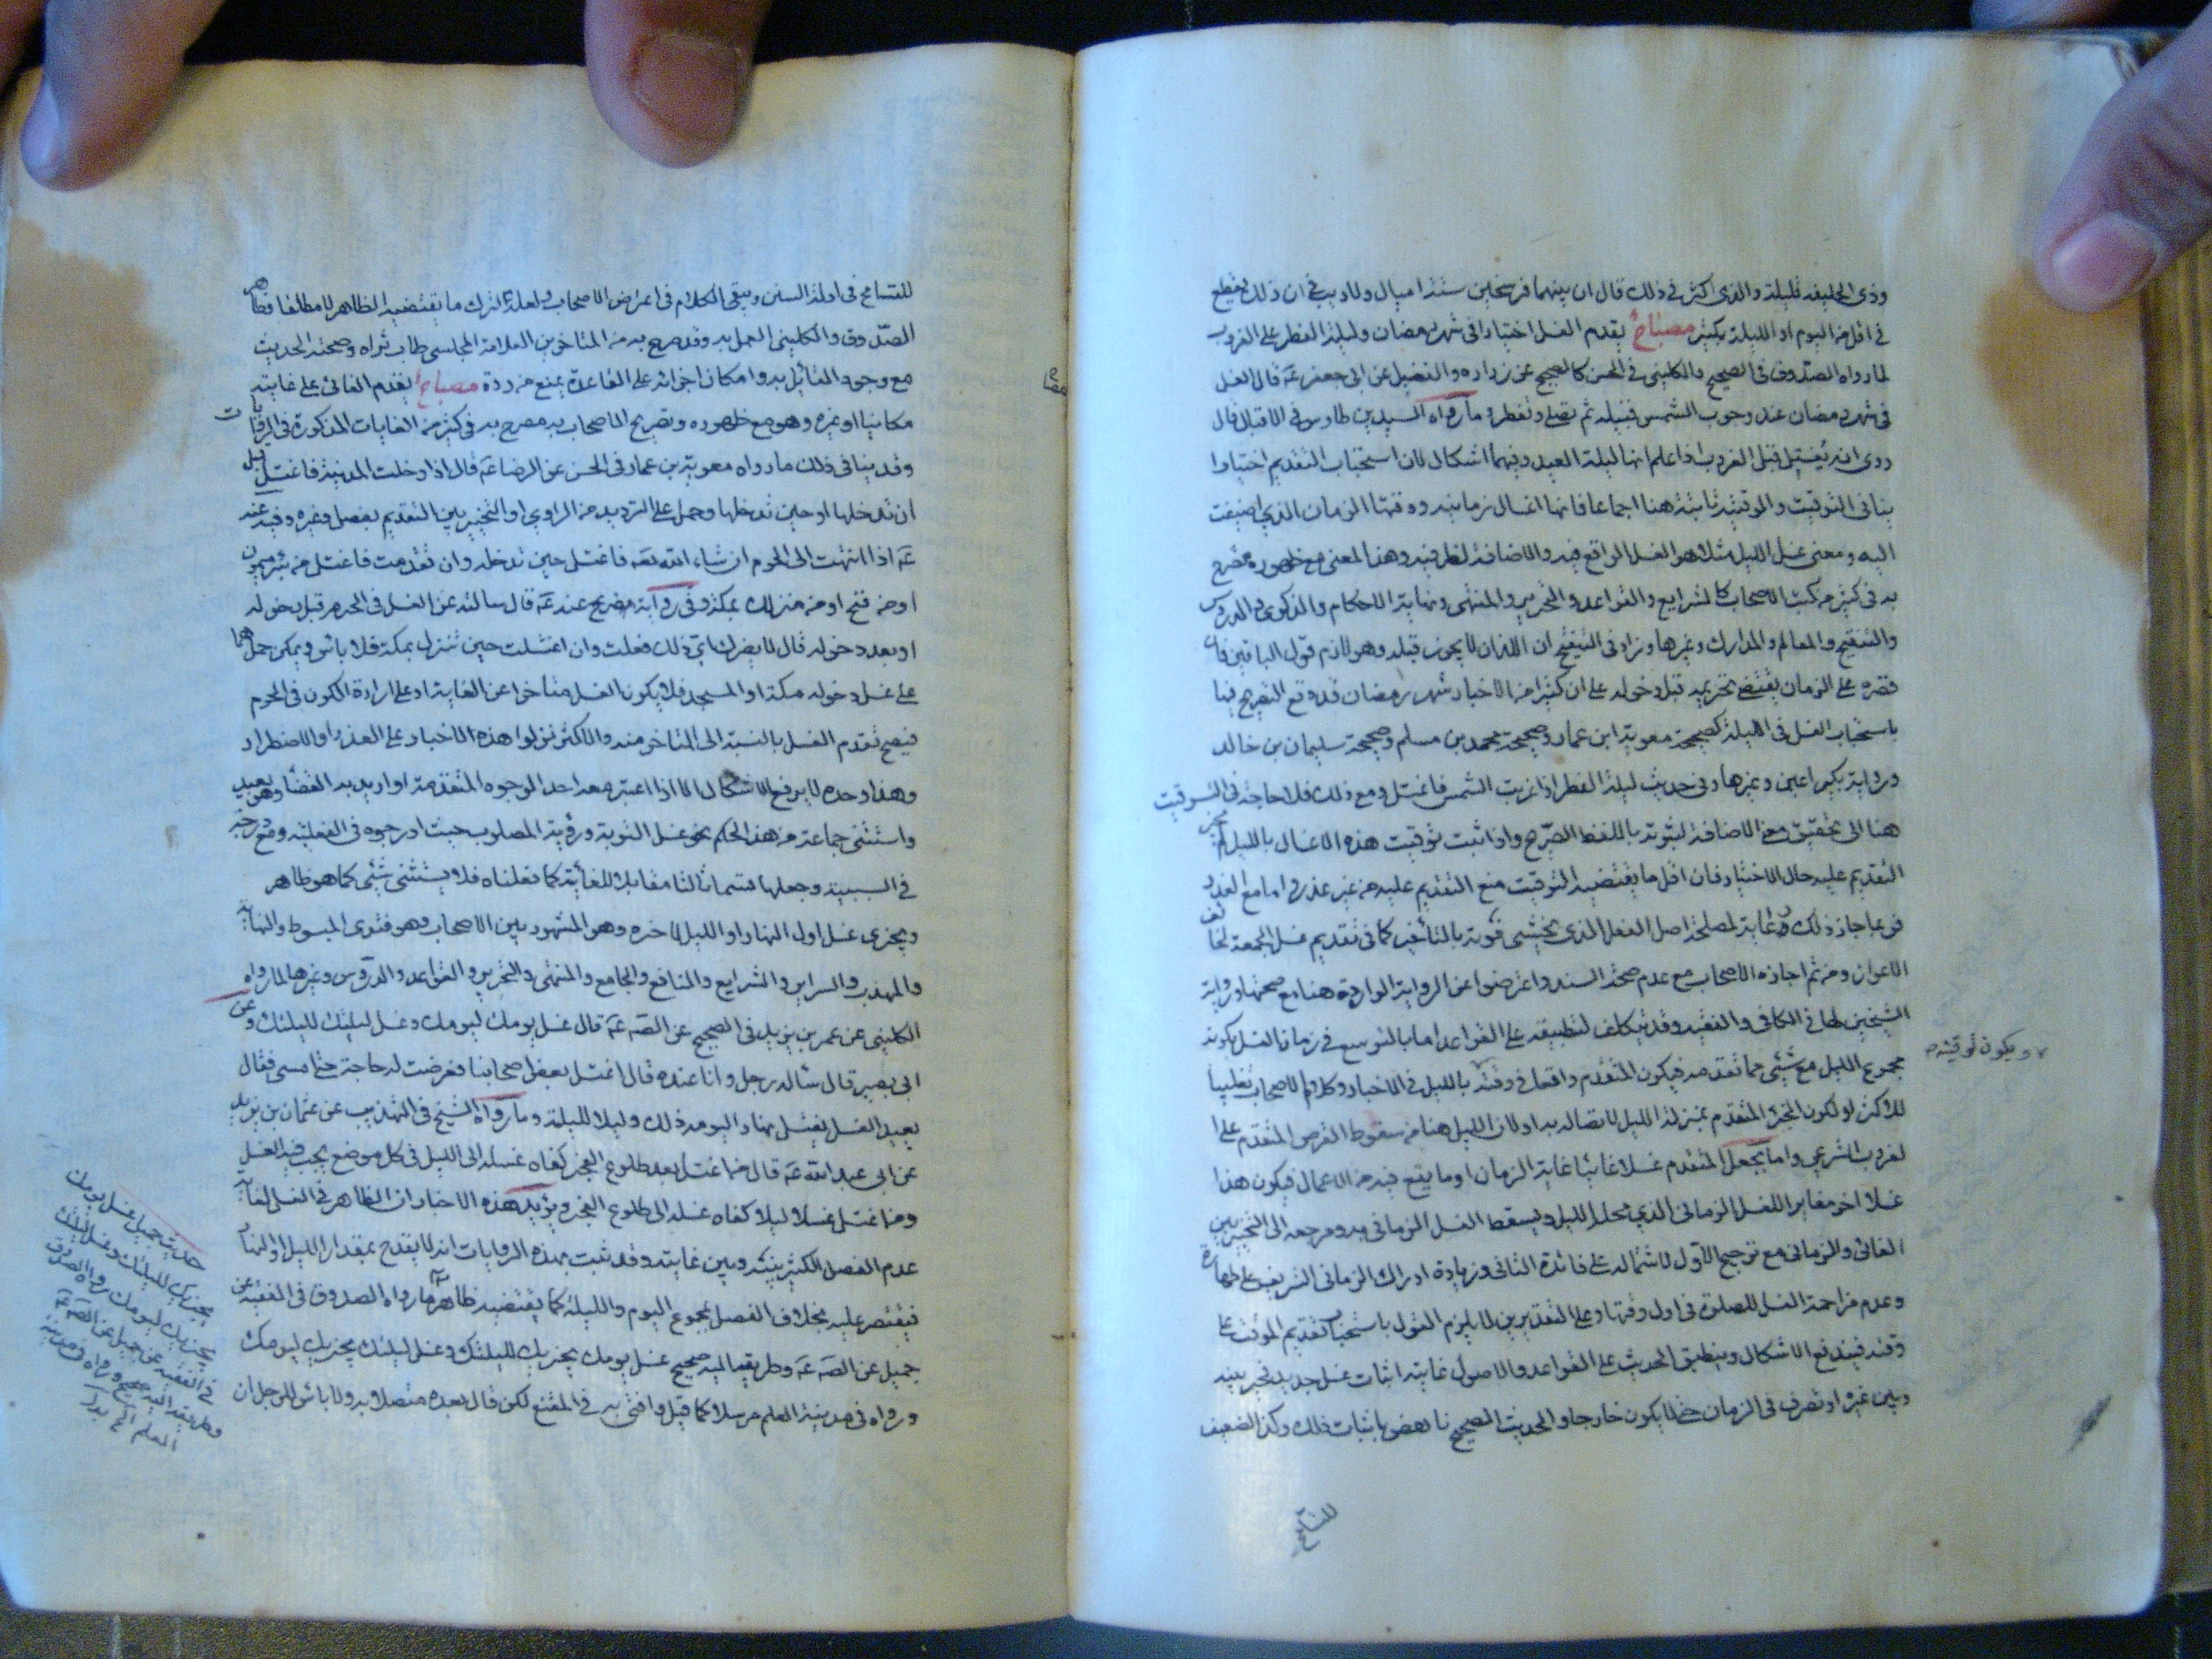 وذى الحليفة قليلة والذى اكثر فى ذلك قال ان بينهما فرسخين ستة اميال ولا ريب فى ان ذلك يقطع
فى اقل من اليوم او الليلة بكثير مصباح يقدم الغسل اختيارا فى شهر رمضان وليلة الفطر على الغروب
لما رواه الصدوق فى الصحيح والكلينى فى الحسن كالصحيح عن زرارة والفضيل عن ابى جعفر عه قال الغسل
فى شهر رمضان عند وجوب الشمس قبيله ثم تصلى وتفطر وما رواه السيد بن طاوس فى الاقبال قال
روى انه يغتسل قبل الغروب اذا علم انها ليلة العيد وفيهما اشكال لان استحباب التقديم اختيارا
ينافى التوقيت والموقتية ثابتة هنا اجماعا فانها اغسال زمانية ووقتها الزمان الذى اضيفت
اليه ومعنى غسل الليل مثلا هو الغسل الواقع فيه والاضافة لظرفية وهذا المعنى مع ظهوره مصرح
به فى كثير من كتب الاصحاب كالشرايع والقواعد والتحرير والمنتهى ونهاية الاحكام والذكرى والدروس
والتنقيح والمعالم والمدارك وغيرها وزاد فى التنقيح ان اللذان لا يجوز قبله وهو لازم قول الباقين فان
قصره على الزمان يقتضى تحريمه قبل دخوله على ان كثيرا من الاخبار شهر رمضان قد وقع التصريح فيها
باستحباب الغسل فى الليلة كصحيحة معوية ابن عمار وصحيحة محمد بن مسلم وصحيحة سليمان بن خالد
ورواية بكير اعين وغيرها وفى حديث ليلة الفطر اذا غربت الشمس فاغتسل ومع ذلك فلا حاجة فى التوقيت
هنا الى تحقيق معنى الاضافة لثبوته باللفظ الصريح واذا ثبت توقيت هذه الاغسال بالليل لم يجز
التقديم عليه حال الاختيار فان اقل ما يقتضيه التوقيت منع التقديم عليه من غير عذر واما مع العذر
فربما جاز ذلك رعاية لمصلحة اصل الفعل الذى يخشى فوته بالتأخير كما فى تقديم غسل الجمعة لخائف
الاعواز ومن ثم اجازه الاصحاب مع عدم صحة السند واعرضوا عن الرواية الواردة هنا مع صحتها ورواية
الشيخين لها فى الكافى والفقيه وقد يتكلف لتطبيقه على القواعد اما بالتوسع فى زمان الغسل بكونه
مجموع الليل مع شئى مما تقدمه فيكون المتقدم واقعا فى وقته بالليل فى الاخبار وكلام الاصحاب تغليبا
للاكثر او لكون الجزء المتقدم بمنزلة الليل لاتصاله به او لان الليل هنا من سقوط القرص المتقدم على ا
لغروب الشرعى واما بجعل المتقدم غسلا غائيا غاية الزمان او ما يقع فيه من الاعمال فيكون هذا
غسلا اخر مغايرا للغسل الزمانى الذى محله الليل ويسقط الغسل الزمانى به ومرجعه الى التخيير بين
الغائى والزمانى مع ترجيح الاول لاشتماله على فائدة الثانى وزيادة ادراك الزمانى الشريف على طهارة
وعدم مزاحمة الغسل للصلوة فى اول وقتها وعلى التقديرين لا يلزم القول باستحباب تقديم الموقت على
وقته فيندفع الاشكال وينطبق الحديث على القواعد والاصول غايته اثبات غسل جديد تخير بينه
وبين غيره او تصرف فى الزمان حتى لا يكون خارجا والحديث الصحيح ناهض باثبات ذلك وكذا الضعيف
للتسامح
ويكون توقيته
للتسامح فى ادلة السنن ويبقى الكلام فى اعراض الاصحاب ولعله لترك ما يقتضيه الظاهر لا مطلقا فظاهر
الصدوق والكلينى العمل به وقد صرح به من المتاخرين العلامة المجلسى طاب ثراه وصحة الحديث
مع وجود القائل به وامكان اجرائه على القاعدة يمنع من رده مصباح يقدم الغائى على غايته
مكانيا او غيره وهو مع ظهوره وتصريح الاصحاب به مصرح به فى كثير من الغايات المذكورة فى الروايات
وقد ينافى ذلك ما رواه معوية بن عمار فى الحسن عن الرضا عه قال اذا دخلت المدينة فاغتسل قبل
ان تدخلها او حين تدخلها وحمل على الترديد من الراوى او التخيير بين التقديم بفصل وغيره وفيه عنه
عه اذا انتهت الى الحرم ان شاء الله تعه فاغتسل حين تدخله وان تقدمت فاغتسل من بئر ميمون
او من فخ او من منزلك بمكة وفى رواية ذريح عنه عه قال سالته عن الغسل فى الحرم قبل دخوله
او بعد دخوله قال لا يضرك اى ذلك فعلت وان اغتسلت حين تنزل بمكة فلا باس ويمكن حملهما
على غسل دخوله مكة او المسجد فلا يكون الغسل متاخرا عن الغاية او على ارادة الكون فى الحرم
فيصح تقدم الغسل بالنسبة الى المتاخر منه والاكثر نزلوا هذه الاخبار على العذر او الاضطرار
وهذا وحده لا يرفع الاشكال الا اذا اعتبر معه احد الوجوه المتقدمة او اريد به القضاء وهو بعيد
واستثنى جماعة من هذا الحكم نحو غسل التوبة ورؤية المصلوب حيث ادرجوه فى الفعلية ومع درجه
فى السببية وجعلها قسما ثالثا مقابلا للغائية كما فعلناه فلا يستثنى شئى كما هو ظاهر
ويجزى غسل اول النهار او الليل لاخره وهو المشهور بين الاصحاب وهو فتوى المبسوط والنهاية
والمهذب والسراير والشرايع والنافع والجامع والمنتهى والتحرير والقواعد والدروس وغيرها لما رواه
الكلينى عن عمر بن يزيد فى الصحيح عن الصه عه قال غسل يومك ليومك وغسل ليلتك لليلتك وعن
ابى بصير قال ساله رجل وانا عنده قال اغتسل بعض اصحابنا فعرضت له حاجة حتى امسى فقال
يعيد الغسل يغتسل نهارا ليومه ذلك وليلا لليلته وما رواه الشيخ فى التهذيب عن عثمان بن يزيد
عن ابى عبد الله عه قال من اغتسل بعد طلوع الفجر كفاه غسله الى الليل فى كل موضع يجب فيه الغسل
ومن اغتسل ليلا كفاه غسله الى طلوع الفجر ويؤيد هذه الاخبار ان الظاهر فى الغسل لغاية
عدم الفصل الكثير بينه وبين غايته وقد ثبت بهذه الروايات انه لا يقدح بمقدار الليل او النهار
فيقتصر عليه بخلاف الفصل بمجموع اليوم والليلة كما يقتضيه ظاهر ما رواه الصدوق فى الفقيه عن
جميل عن الصه عه وطريقه اليه صحيح غسل يومك يجزيك لليلتك وغسل ليلتك يجزيك ليومك
ورواه فى مدينة العلم مرسلا كما قيل وافتى به فى المقنع لكن قال بعده متصلا به ولا باس للرجل ان
حديث جميل غسل يومك
يجزيك لليلتك وغسل ليلتك
يجزيك ليومك رواه الصدوق
فى الفقيه عن جميل عن الصه عه
وطريقه اليه صحيح ورواه فى مدينة
العلم